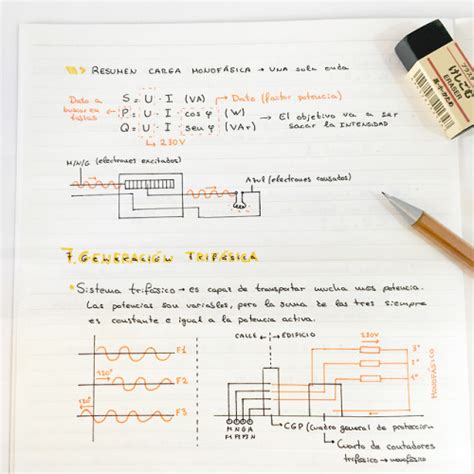 RESUMEN CARGA MONOFÁSICA → UNA sola onda
Dato a buscar en
S = U · I (VA) → Dato (factor potencia)
P = U · I · cos φ (W)
Q = U · I · seu φ (VAr)
→ El objetivo va a ser
sacar la INTENSIDAD
↳ 230V
M/N/G (electrones excitados)
Azul (electrones cansados)
7. GENERACIÓN TRIFÁSICA
• Sistema trifásico → es capaz de transportar mucha más potencia.
Las potencias son variables, pero la suma de las tres siempre
es constante e igual a la potencia activa.
CALLE ← → EDIFICIO
230V
F1
120°
F2
120°
F3
3º
2º
1º
MONOFÁSICO
M N G A
CGP (Cuadro general de protección
Cuarto de contadores
trifásico → monofásico
けしごむ
ERASER